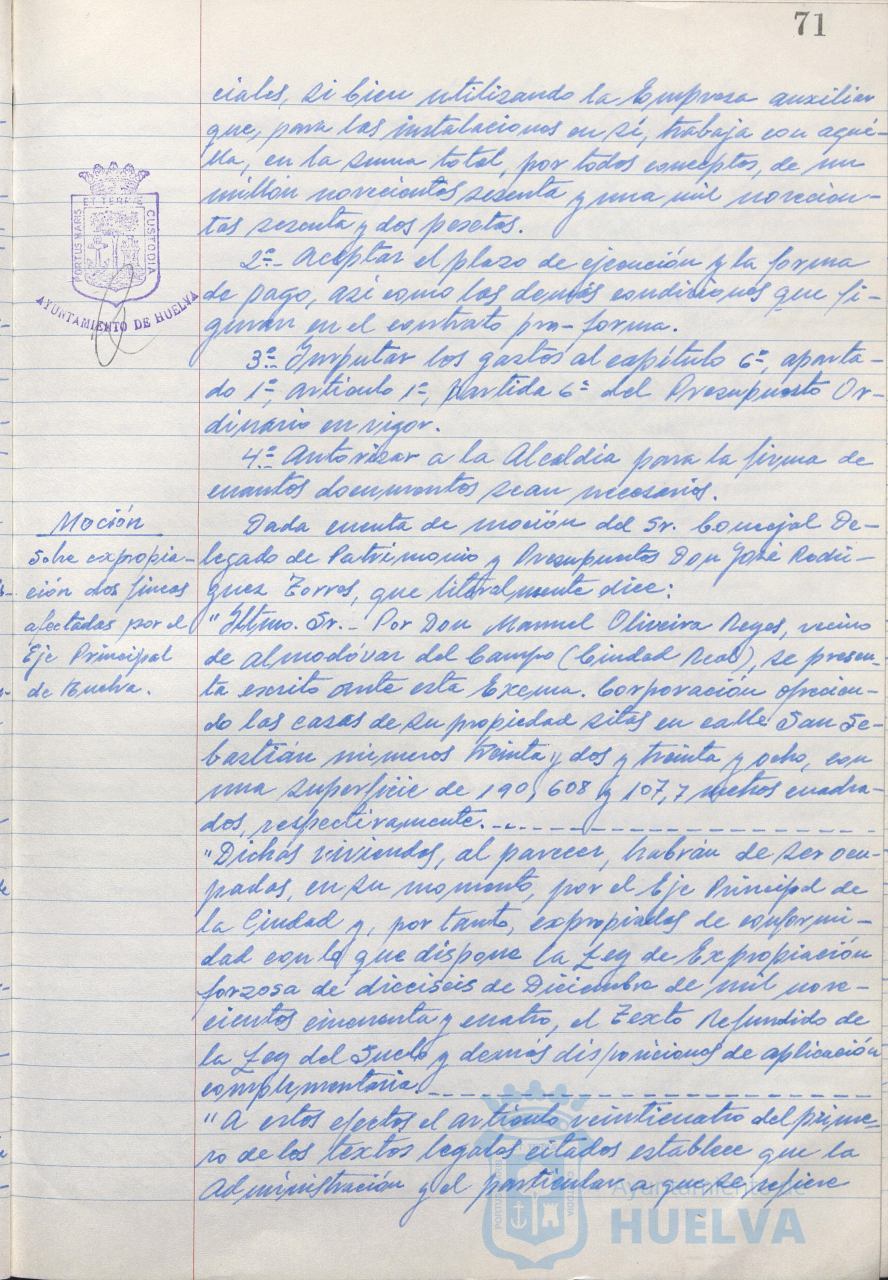 71
ciales, si bien utilizando la Empresa auxiliar
que, para las instalaciones en sí, trabaja con aqué-
lla, en la suma total, por todos conceptos, de un
millón novecientos sesenta y una mil novecien-
tas sesenta y dos pesetas.
2º.- Aceptar el plazo de ejecución y la forma
de pago, así como las demás condiciones que fi-
guran en el contrato pro-forma.
3º.- Imputar los gastos al capítulo 6º, aparta-
do 1º, artículo 1º, partida 6ª del Presupuesto Or-
dinario en vigor.
4º.- Autorizar a la Alcaldía para la firma de
cuantos documentos sean necesarios.
PORTUS MARIS
ET TERRAE
CUSTODIA
AYUNTAMIENTO DE HUELVA
Moción
sobre expropia-
ción dos fincas
afectadas por el
Eje Principal
de Huelva.
Dada cuenta de moción del Sr. Concejal De-
legado de Patrimonio y Presupuestos Don José Rodrí-
guez Torres, que literalmente dice:
"Iltmo. Sr.- Por Don Manuel Oliveira Reyes, vecino
de Almodóvar del Campo (Ciudad Real), se presen-
ta escrito ante esta Excma. Corporación ofrecien-
do las casas de su propiedad sitas en calle San Se-
bastián números treinta y dos y treinta y ocho, con
una superficie de 190,608 y 107,7 metros cuadra-
dos, respectivamente.-
"Dichas viviendas, al parecer, habrán de ser ocu-
padas, en su momento, por el Eje Principal de
la Ciudad y, por tanto, expropiadas de conformi-
dad con lo que dispone la Ley de Expropiación
forzosa de dieciseis de Diciembre de mil nove-
cientos cincuenta y cuatro, el Texto Refundido de
la Ley del Suelo y demás disposiciones de aplicación
complementaria.-
"A estos efectos el artículo veinticuatro del prime-
ro de los textos legales citados establece que la
Administración y el particular a que se refiere
Ayuntamiento de
HUELVA